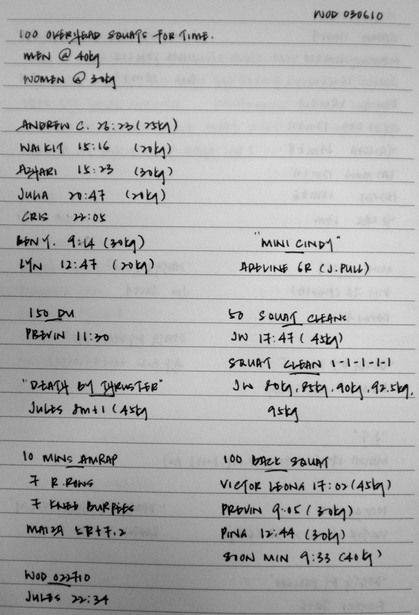 WOD 030610
100 OVERHEAD SQUATS FOR TIME.
MEN @ 40kg
WOMEN @ 30kg
ANDREW C. 26:23 (25kg)
WAI KIT 15:16 (20kg)
AZHARI 15:23 (30kg)
JULIA 20:47 (20kg)
CRIS 22:05
BEN Y. 9:14 (30kg)
LYN 12:47 (20kg)
"MINI CINDY"
ADELINE 6R (J.PULL)
150 DU
PREVIN 11:30
"DEATH BY THRUSTER"
JULES 8m+1 (45kg)
50 SQUAT CLEANS
JW 17:47 (45kg)
SQUAT CLEAN 1-1-1-1-1
JW 80kg, 85kg, 90kg, 92.5kg,
95kg
10 MINS AMRAP
7 R.ROWS
7 KNEE BURPEES
MAIZA
100 BACK SQUAT
VICTOR LEONG 17:02 (45kg)
PREVIN 9:05 (30kg)
PINA 12:44 (30kg)
SOON MIN 9:33 (40kg)
WOD 022710
JULES 22:34